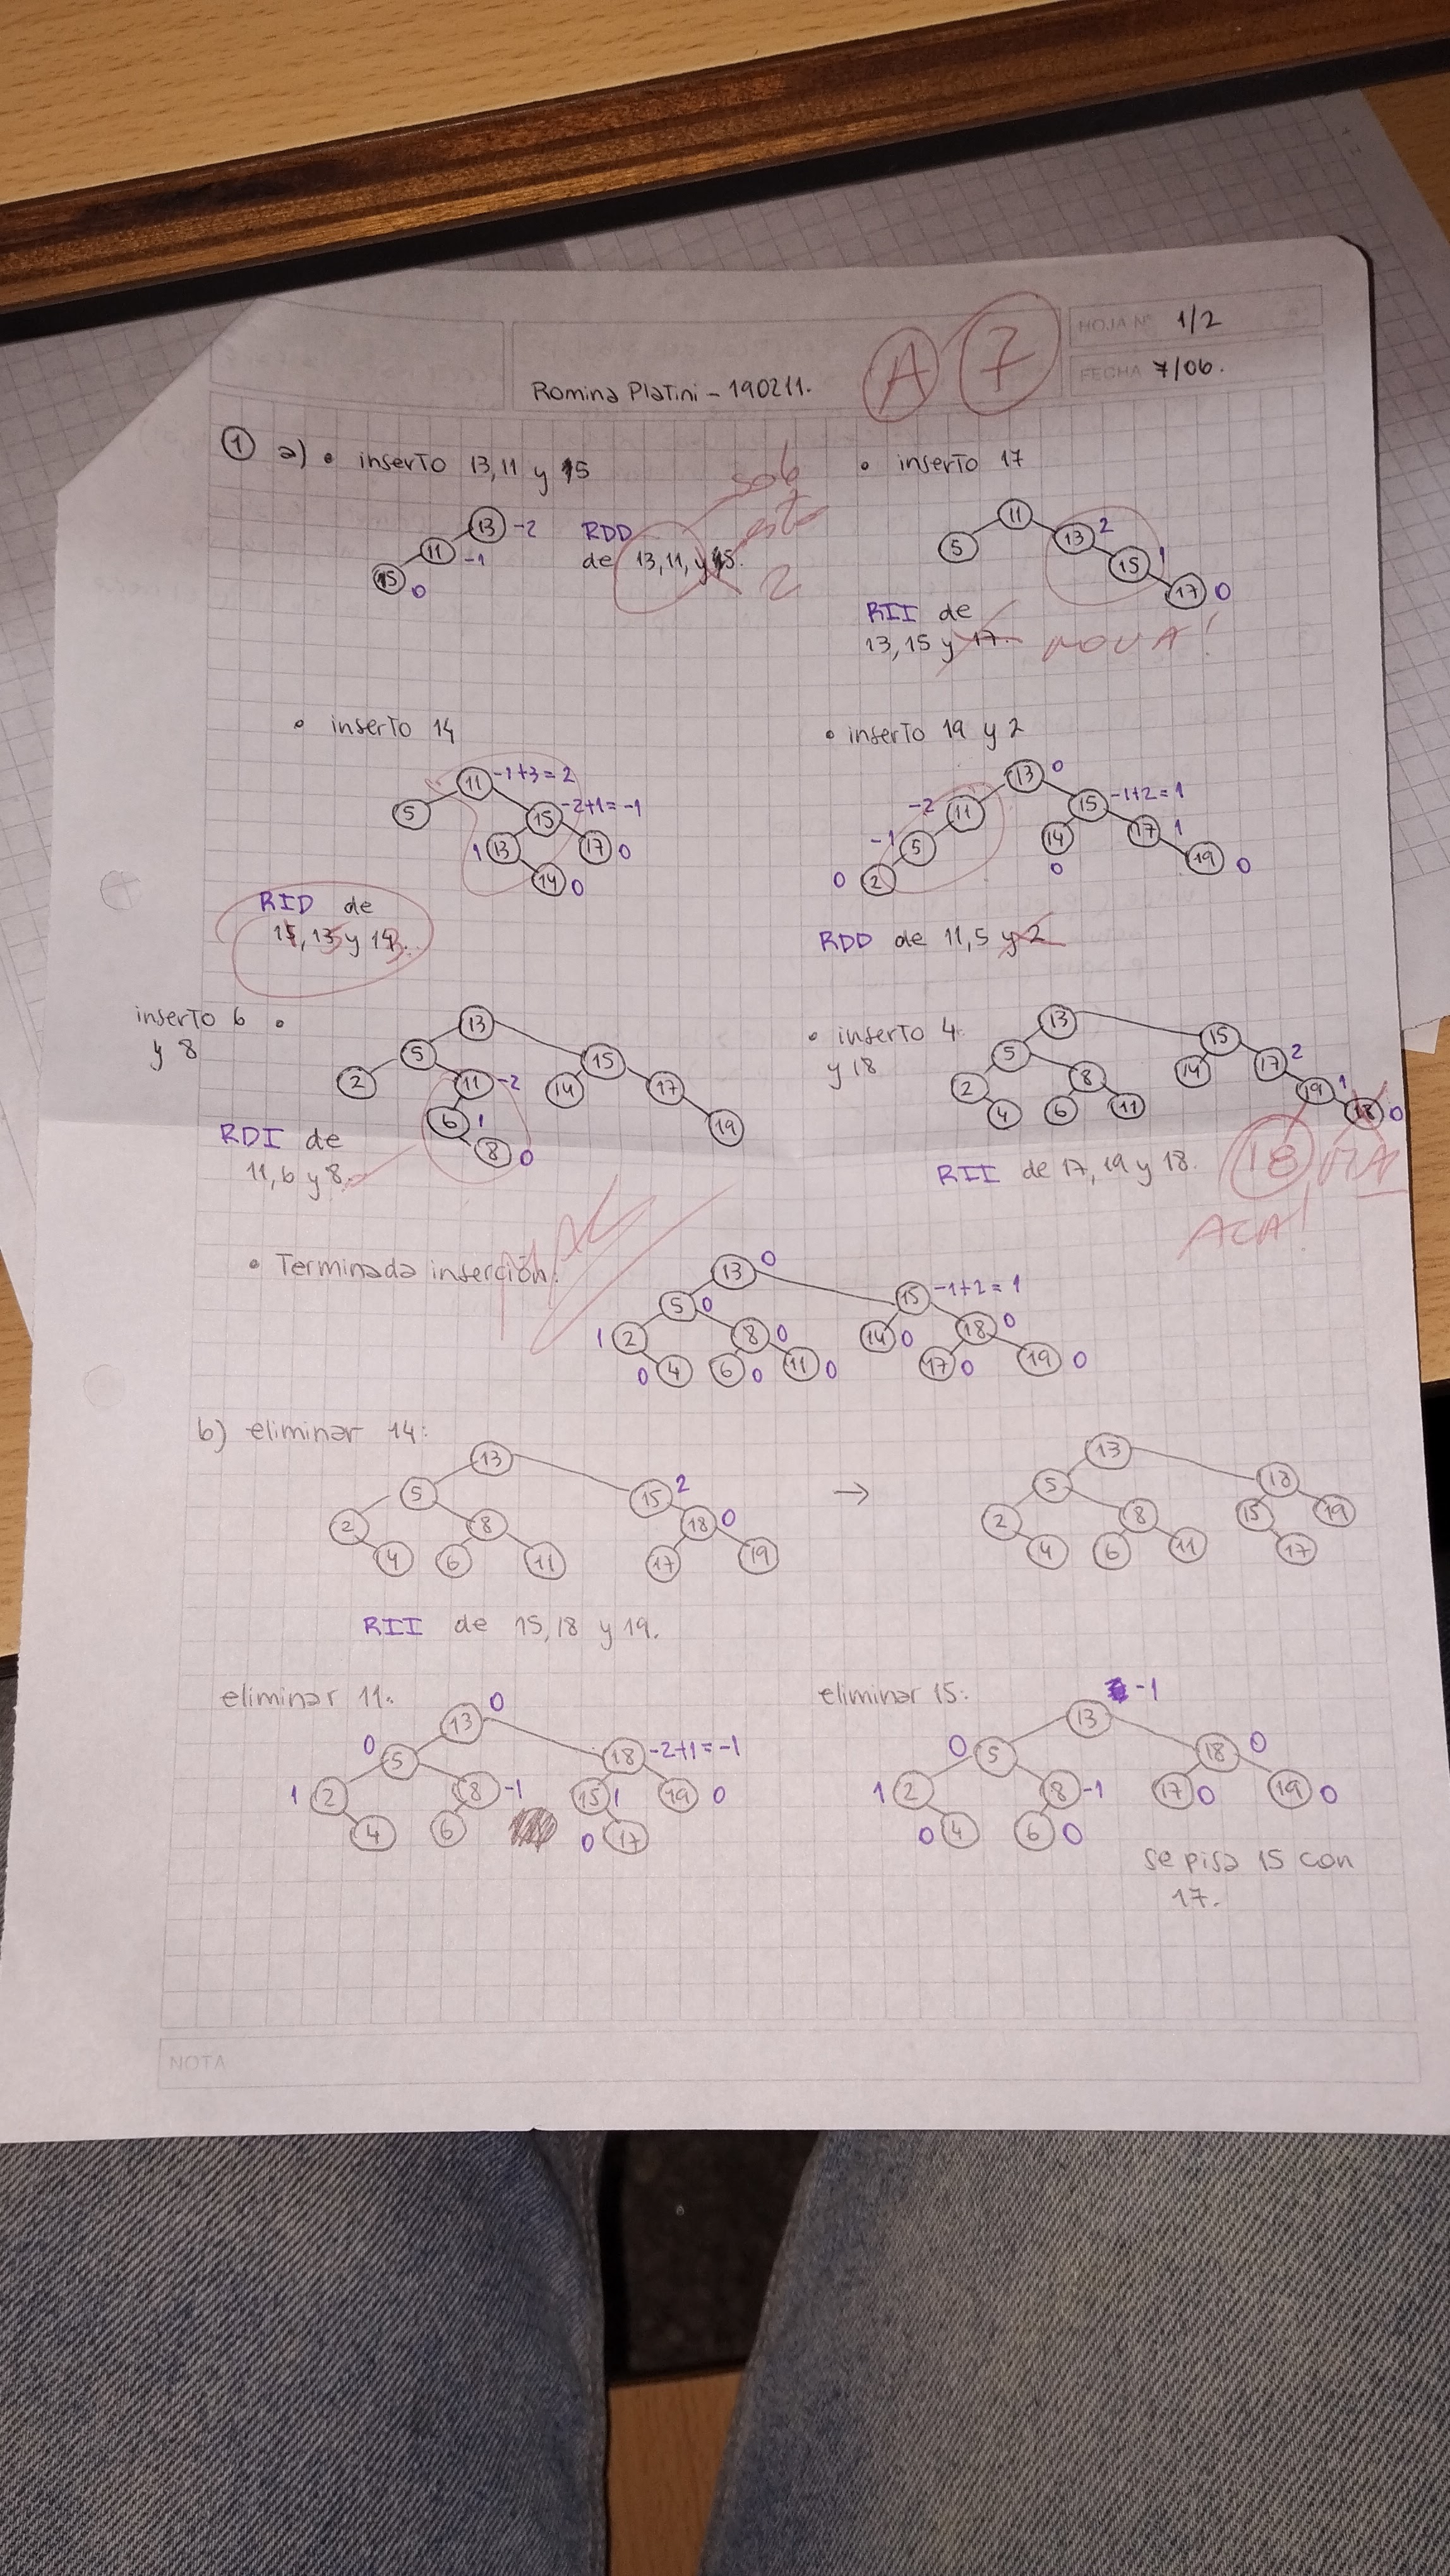 HOJA Nº 1/2
FECHA 7/06.
Romina Platini - 190211.
A 7
1 a) • inserto 13, 11 y 15
13 -2
11 -1
15 0
RDD
de 13, 11, y 15.
solo
2
• inserto 17
11
5 13 2
15 1
17 0
RII de
13, 15 y 17.
NO VA!
• inserto 14
11 -1+3=2
5 15 -2+1=-1
1 13 17 0
14 0
RID de
• inserto 19 y 2
13 0
-2 11 15 -1+2=1
-1 5 14 17 1
0 2 0 19 0
RDD de 11, 5 y 2
inserto 6 •
y 8
13
5 15
2 11 -2 14 17
6 1 19
8 0
RDI de
11, 6 y 8.
• inserto 4
y 18
13
5 15
2 8 14 17 2
4 6 11 19 1
18 0
RII de 17, 19 y 18.
18 VA
ACA!
MAL
• Terminada inserción:
13 0
5 0 15 -1+2=1
1 2 8 0 14 0 18 0
0 4 6 0 11 0 17 0 19 0
b) eliminar 14:
13
5 15 2
2 8 18 0
4 6 11 17 19
→
13
5 18
2 8 15 19
4 6 11 17
RII de 15, 18 y 19.
eliminar 11:
13 0
0 5 18 -2+1=-1
1 2 8 -1 15 1 19 0
4 6 0 17
eliminar 15:
13 -1
0 5 18 0
1 2 8 -1 17 0 19 0
0 4 6 0
se pisa 15 con
17.
NOTA